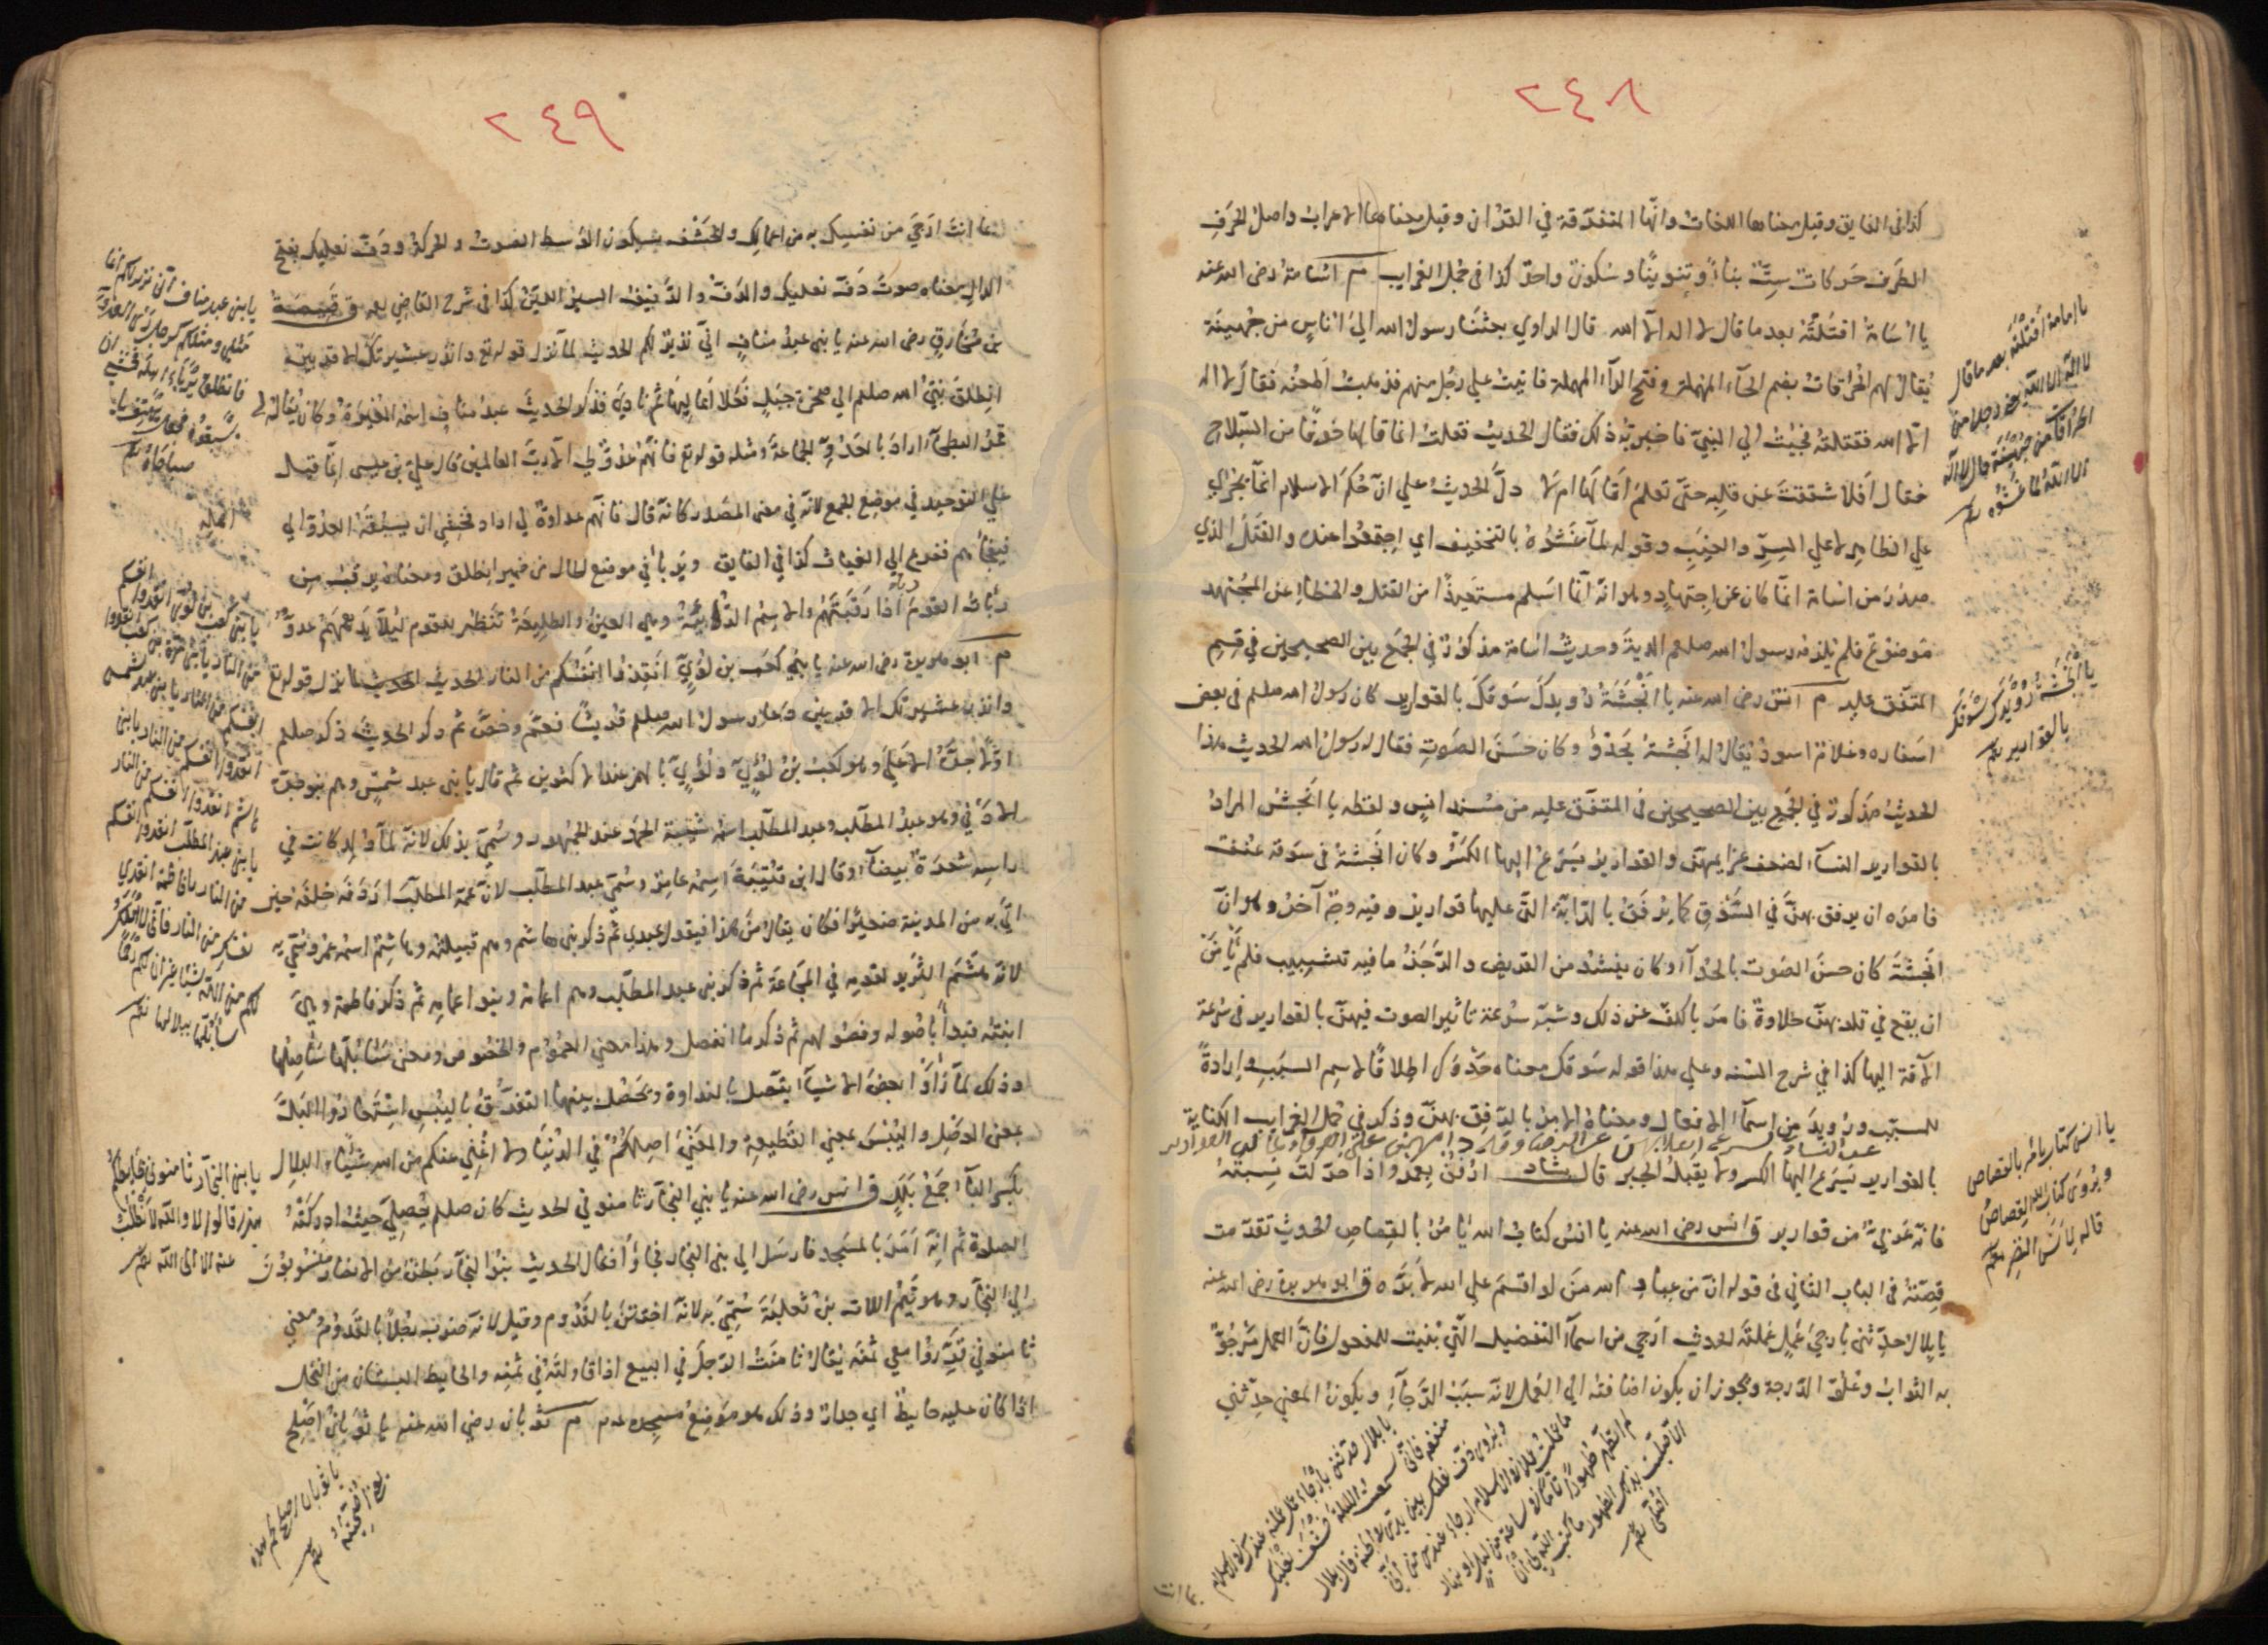 ٢٤٨
كذا فى الفايق وقيل معناها اللغات وانها المتفرقة في القرآن وقيل معناها الاعراب واصل الحرف
الطرف حركات ستّة بناءً وتنوينًا وسكونة واحق كذا فى مجمل الغرايب م اسامة رضى الله عنه
يا اسامة اقتلته بعد ما قال لا اله الا الله قال الراوي بعثنا رسول الله الى اناس من جهينة
يقال لهم الحرقات بضم الحاء المهملة وفتح الراء المهملة فاتيت علي رجل منهم فذهبت اطعنه فقال لا اله
الا الله فقتلته فجئت الي النبي فاخبرته ذلك فقال الحديث فقلت انما قالها خوفا من السلاح
فقال افلا شققت عن قلبه حتى تعلم اقالها ام لا دلّ الحديث علي ان حكم الاسلام انما يجري
علي الظاهر لا علي السرّ والغيب وقوله لما غشوه بالتخفيف اي اجتمعوا عنده والقتل الذي
صدر من اسامة انما كان عن اجتهاد وهو انه انما اسلم مستعيذًا من القتل والخطاء عن المجتهد
موضوع فلم يلزمه رسول الله صلعم الدية وحديث اسامة مذكور في الجمع بين الصحيحين في قسم
المتفق عليه م انس رضى الله عنه يا انجشة رويدك سوقك بالقوارير كان رسول الله صلعم فى بعض
اسفاره وغلام اسود يقال له انجشة يحدو وكان حسن الصوت فقال له رسول الله الحديث هذا
الحديث مذكور في الجمع بين الصحيحين فى المتفق عليه من مسند انس ولفظه يا انجش المراد
بالقوارير النساء لضعف عزايمهن والقوارير يسرع اليها الكسر وكان انجشة فى سوقه عنف
فامره ان يرفق بهن في السوق كما يرفق بالدابة التى عليها قوارير وفيه وجه آخر وهو ان
انجشة كان حسن الصوت بالحداء وكان ينشد من القريض والرجز ما فيه تشبيب فلم يأمن
ان يقع في قلوبهن حلاوة فامر بالكف عن ذلك وشبّه سرعة تاثير الصوت فيهن بالقوارير فى سرعة
الآفة اليها كذا في شرح السنه وعلي هذا قوله سوقك معناه حدوك اطلاقًا لاسم السبب وارادة
المسبّب ورويد من اسماء الافعال ومعناه الامر بالرفق بهن وذكر في مجمل الغرايب الكناية
بالقوارير يسرع اليها الكسر ولا يقبل الجبر قال ارفق بعمرو اذا حركت نسبته
فانه عربي من قوارير ق انس رضى الله عنه يا انس كتاب الله يأمر بالقصاص الحديث تقدمت
قصته فى الباب الثاني فى قوله ان من عباد الله من لو اقسم علي الله لابره ق ابو هريرة رضى الله عنه
يا بلال حدثنى بارجي عمل عملته الحديث ارجي من اسماء التفضيل التي بنيت للمفعول فان العمل مرجو
به الثواب وعلو الدرجة ويجوز ان يكون اضافته الى العمل لانه سبب الرجاء ويكون المعنى حدثني
يا اسامة اقتلته بعد ما قال
لا اله الا الله
الا الله لما غشوه
يا انجشة رويدك سوقك
بالقوارير
يا انس كتاب الله يأمر بالقصاص
ويروى كتاب الله القصاص
قاله لانس بن النضر
٢٤٩
بما انت ارجي من نفسك به من اعمالك والخشف بسكون الوسط الصوت والحركة ودف نعليك بفتح
الدال معناه صوت دف نعليك والدف والدفيف السير اللين كذا فى شرح القاضي ق قبيصة
بن مخارق رضى الله عنه يا بنى عبد مناف اني نذير لكم الحديث لما نزل قوله تع وانذر عشيرتك الاقربين
انطلق نبي الله صلعم الي صخرة جبل فعلا اعاليها ثم نادي فذكر الحديث عبد مناف اسمه المغيرة وكان يقال له
قمر البطحاء اراد بالعدو الجماعة ومثله قوله تع فانهم عدو لي الا رب العالمين قال علي بن عيسى انما قيل
علي التوحيد في موضع الجمع لانه في معنى المصدر كانه قال فانهم عداوة لي اراد فخشي ان يسبقه العدو الي
فيفجأهم ففزع الي الغياث كذا في الفايق ويربأ في موضع الحال من ضمير انطلق ومعناه يرقب من
ربأت القوم اذا رقبتهم والاسم الربيئة وهي العين والطليعة تنظر للقوم ليلا يدهمهم عدو
م ابو هريرة رضى الله عنه يا بني كعب بن لؤي انقذوا انفسكم من النار الحديث لما نزل قوله تع
وانذر عشيرتك الاقربين دعا رسول الله صلعم قريشًا فعمّ وخصّ ثم ذكر الحديث ذكر صلعم
اولًا جدّه الاعلي وهو كعب بن لؤي ولؤي بالهمز عند الاكثرين ثم قال يا بنى عبد شمس وهم
الادنى وهو عبد المطلب وعبد المطلب اسمه شيبة الحمد عند الجمهور وسمي بذلك لانه لما ولد كانت في
راسه شعرة بيضاء وقال ابن قتيبة اسمه عامر وسمي عبد المطلب لان عمه المطلب اردفه خلفه حين
اتي به من المدينة صغيرا فكان يقال من هذا فيقول عبدي ثم ذكر بنى هاشم وهم قبيلته وهاشم اسمه عمرو سمي به
لانه هشم الثريد لقومه في المجاعة ثم ذكر بنى عبد المطلب وهم اعمامه وبنو اعمامه ثم ذكر فاطمة وهي
ابنته فبدأ باصوله وفصوله ثم ذكر ما انفصل وهذا معنى العموم والخصوص ومعنى سابلّها ساصلها
وذلك لما رأوا بعض الاشياء يتصل بالنداوة ويحصل بينها التفرق باليبس استعاروا البلل
بمعنى الوصل واليبس بمعنى القطيعة والمعنى اصلكم في الدنيا ولا اغني عنكم من الله شيئًا والبلال
بكسر الباء جمع بلل ق انس رضى الله عنه يا بني النجار ثامنوني الحديث كان صلعم يصلي حيث ادركته
الصلوة ثم انه امر بالمسجد فارسل الي بنى النجار فجاؤا فقال الحديث بنوا لنجار بطن من الانصار منسوبون
الي النجار وهو تيم اللات بن ثعلبة سمي به لانه اختتن بالقدوم وقيل لانه ضرب رجلا بالقدوم معنى
ثامنوني قدّروا معي ثمنه يقال ثامنت الرجل في البيع اذا قاولته في ثمنه والحايط البستان من النخل
اذا كان عليه حايط اي جدار وذلك هو موضع مسجده م ثوبان رضى الله عنه يا ثوبان اصلح
يا بنى عبد مناف انى نذير لكم انما
مثلى ومثلكم كرجل رأى العدو
فانطلق يربأ اهله فخشى ان
يسبقوه فجعل يهتف يا
صباحاه
يا بنى كعب بن لؤى انقذوا انفسكم
من النار يا بنى مرة بن كعب انقذوا
انفسكم من النار يا بنى عبد شمس
انقذوا انفسكم من النار يا بنى
هاشم انقذوا انفسكم من النار
يا بنى عبد المطلب انقذوا انفسكم
من النار يا فاطمة انقذى
نفسك من النار فانى لا املك
لكم من الله شيئا غير ان لكم رحما
سابلها ببلالها
يا بنى النجار ثامنونى بحائطكم
هذا قالوا لا والله لا نطلب
ثمنه الا الى الله
يا ثوبان اصلح لحم هذه
الاضحية